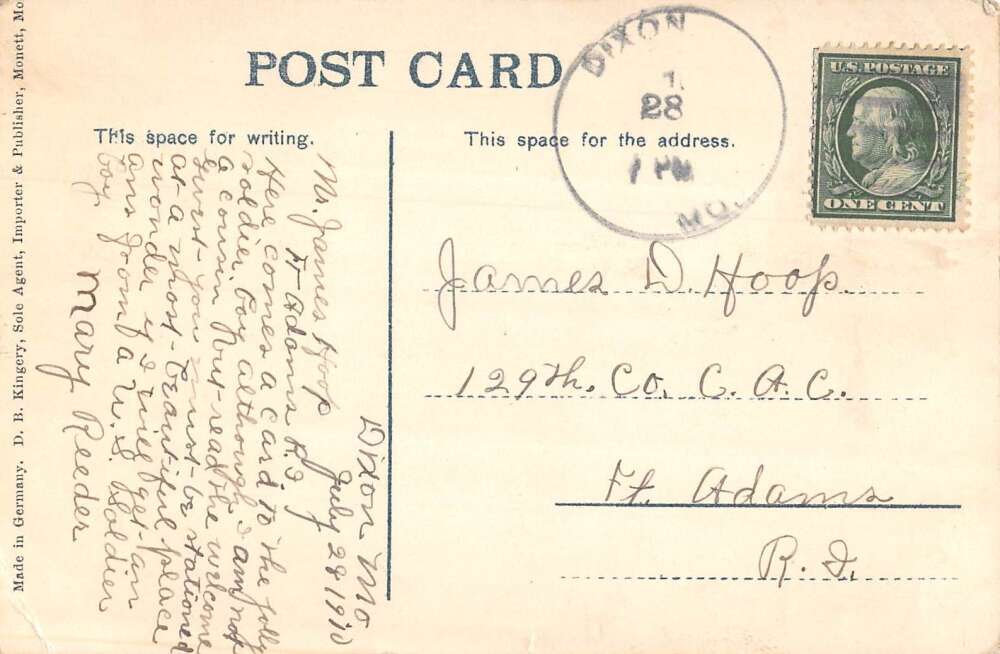 POST CARD
This space for writing.
This space for the address.
Made in Germany. D. B. Kingery, Sole Agent, Importer & Publisher, Monett, Mo
DIXON
28
1 PM
MO.
U.S. POSTAGE
ONE CENT
James D. Hoop.
129th. Co. C. A. C.
Ft. Adams
R. I.
Dixon Mo
July 28 1910
Mr. James Hoop
Ft Adams R. I
Here comes a card to the jolly
soldier boy although I am not
a cousin but read the welcome
you must be stationed
at a most beautiful place
wonder if I will get an
ans from a U. S. Soldier
boy
Mary Reeder